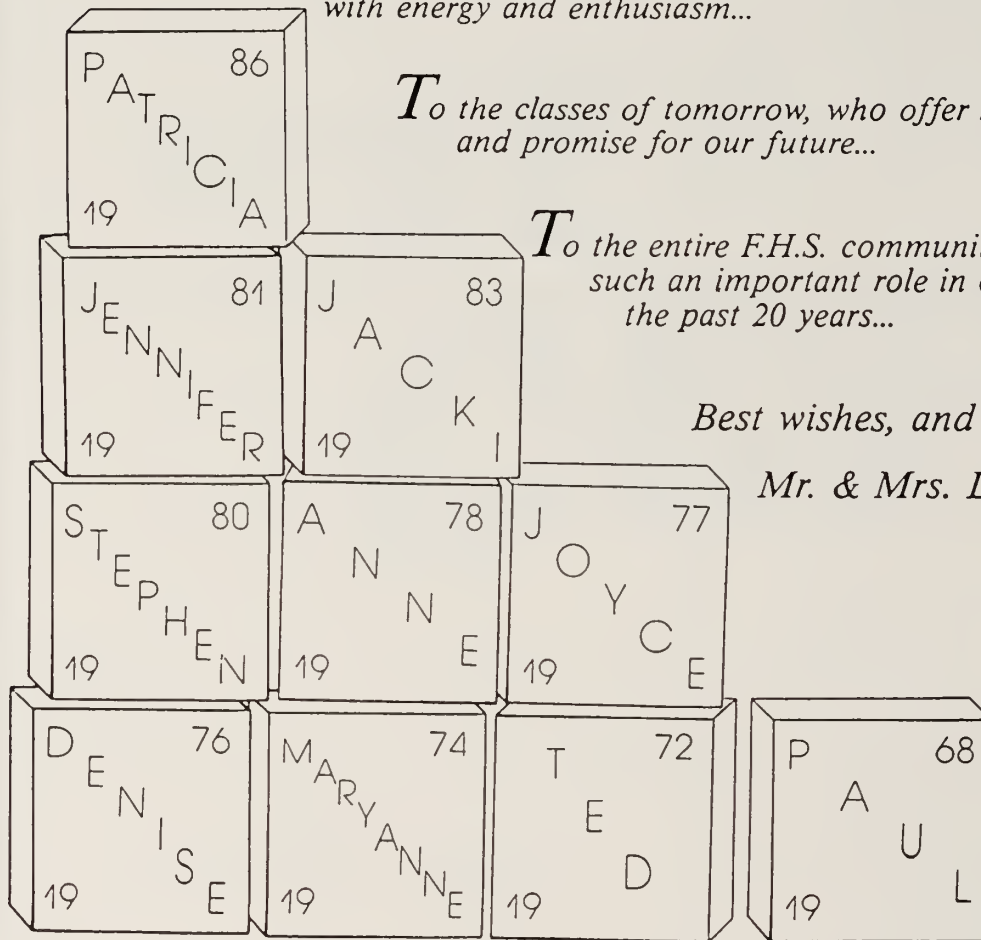 with energy and enthusiasm...
To the classes of tomorrow, who offer
and promise for our future...
To the entire F.H.S.
such an important role in
the past 20 years...
Best wishes, and
Mr. & Mrs.
PATRICIA
19 86
JENNIFER
19 81
JACKI
19 83
STEPHEN
19 80
ANNE
19 78
JOYCE
19 77
DENISE
19 76
MARYANNE
19 74
TED
19 72
PAUL
19 68